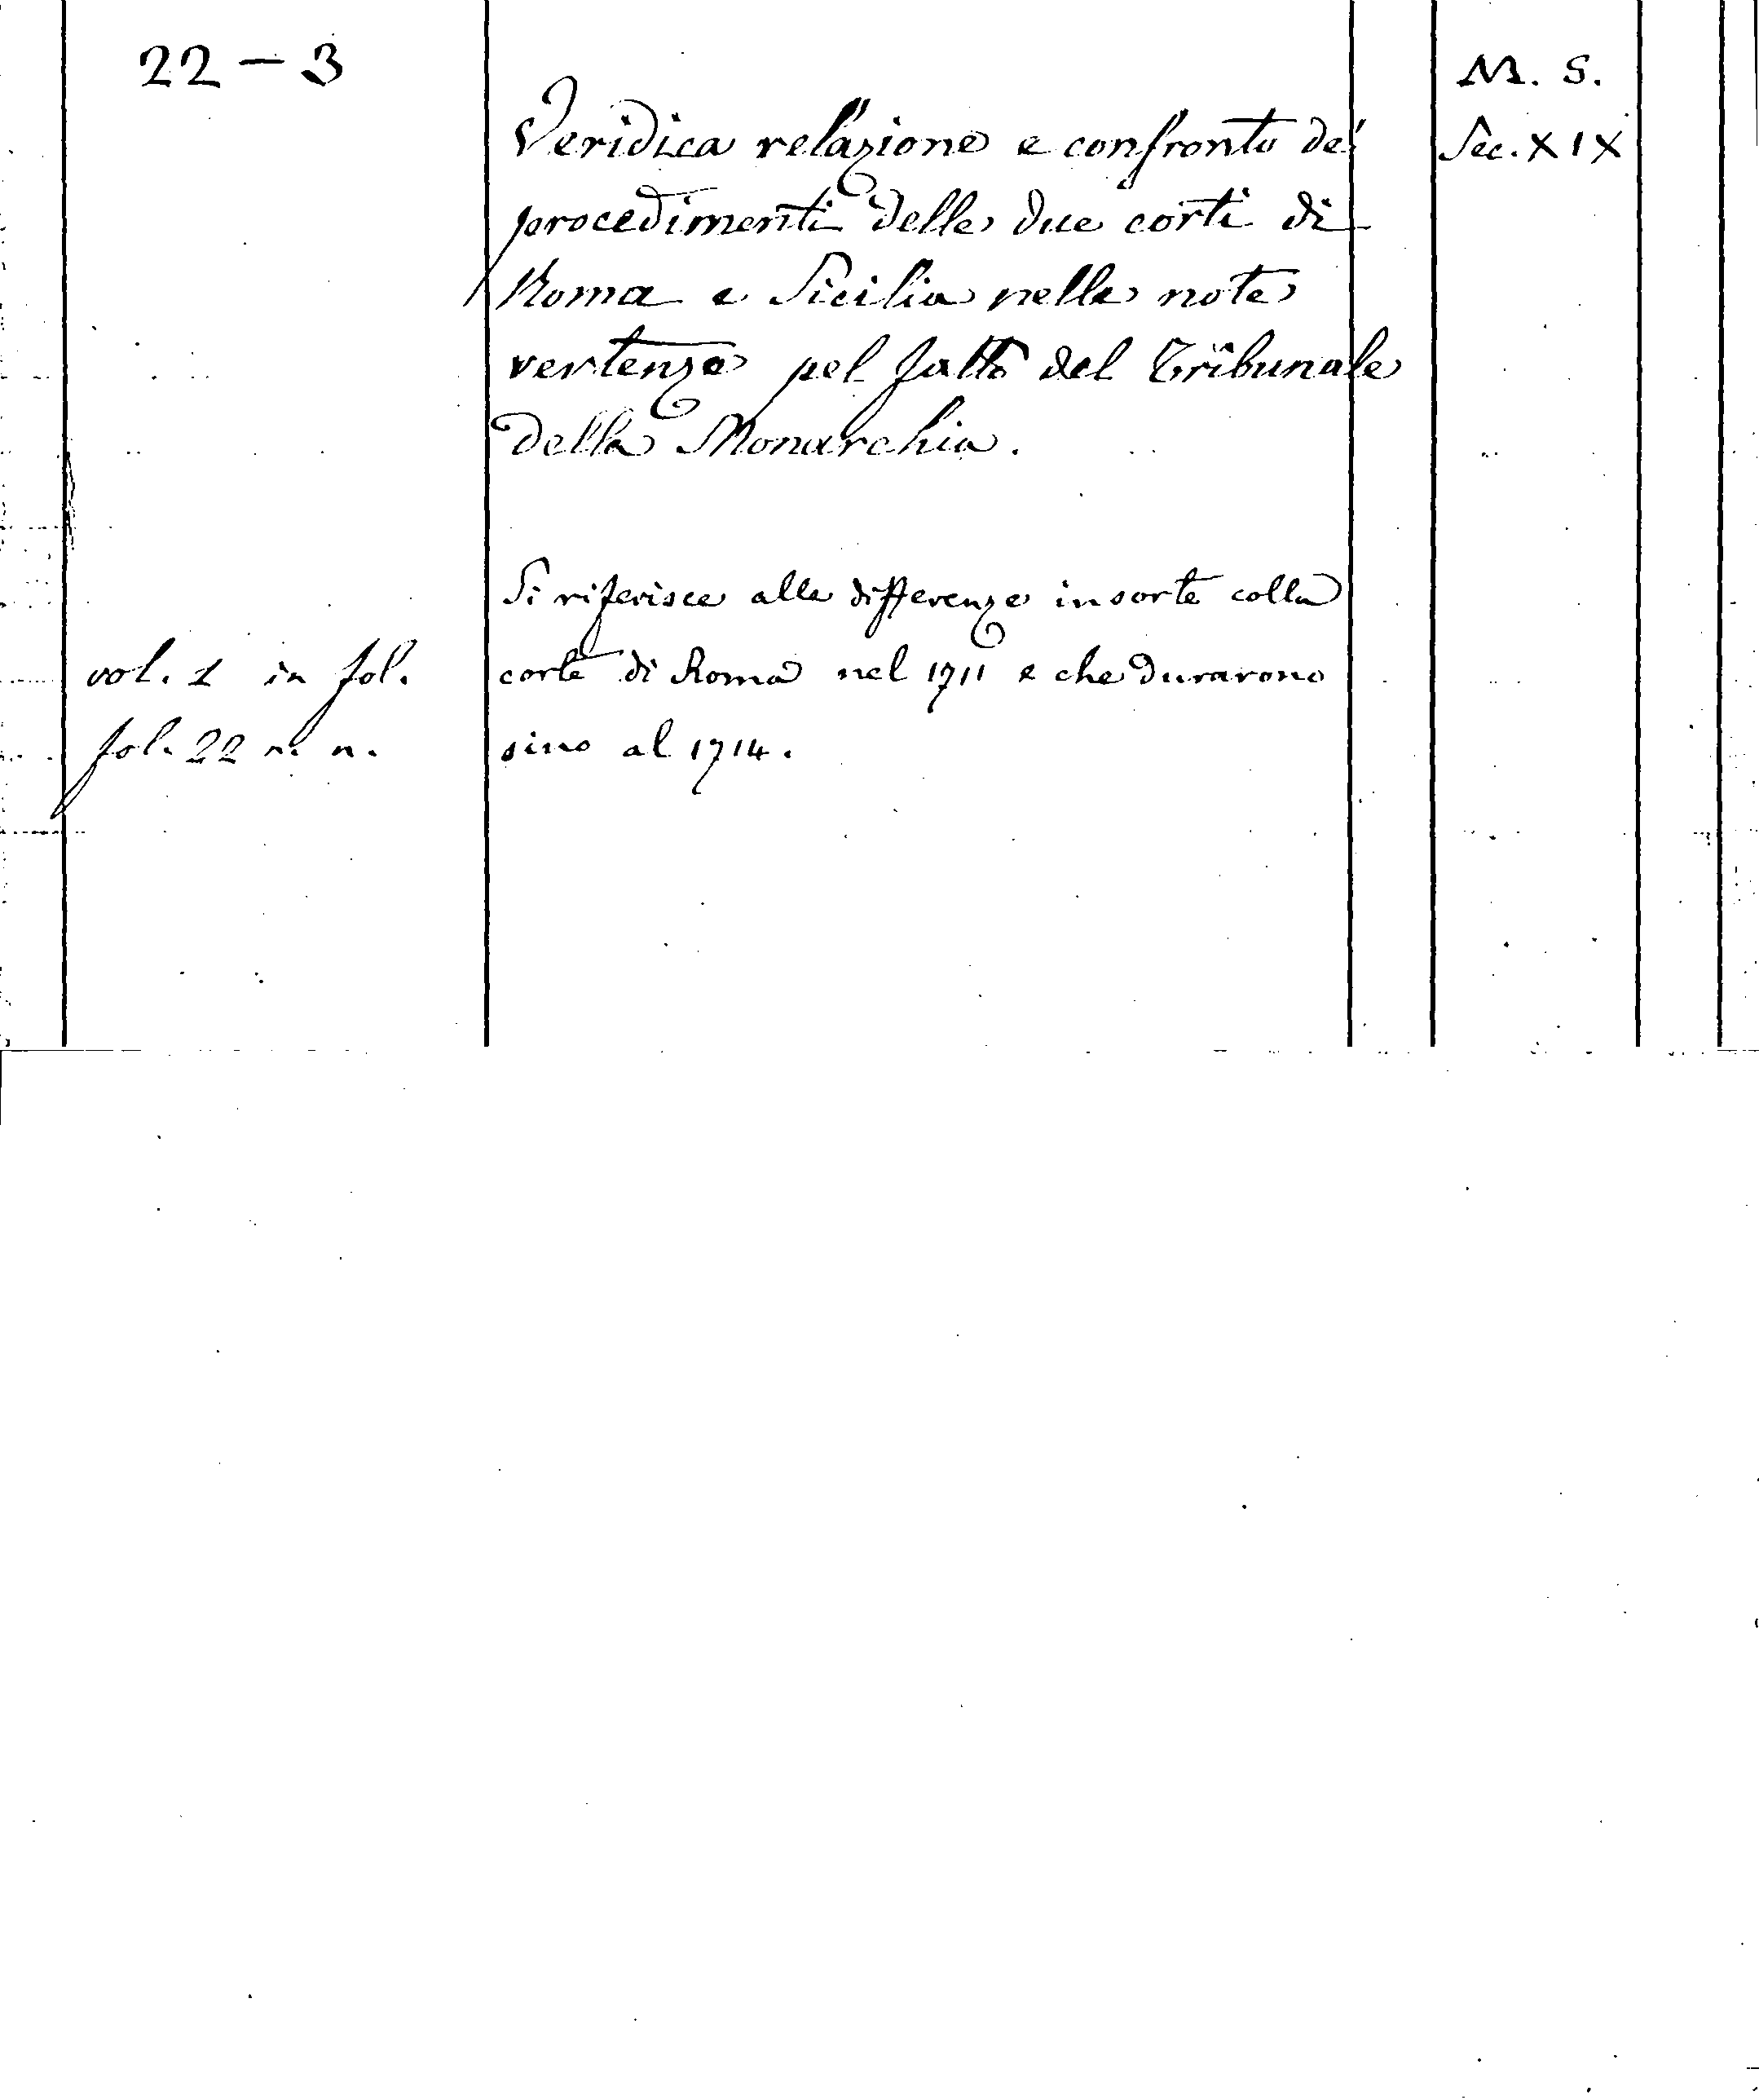 22 - 3
M. S.
Veridica relazione e confronto de'
Sec. XIX
procedimenti delle due corti di
Roma e Sicilia nelle note
vertenze pel fatto del Tribunale
della Monarchia.
Si riferisce alle differenze insorte colla
vol. 1 in fol.
corte di Roma nel 1711 e che durarono
fol. 22 n. n.
sino al 1714.